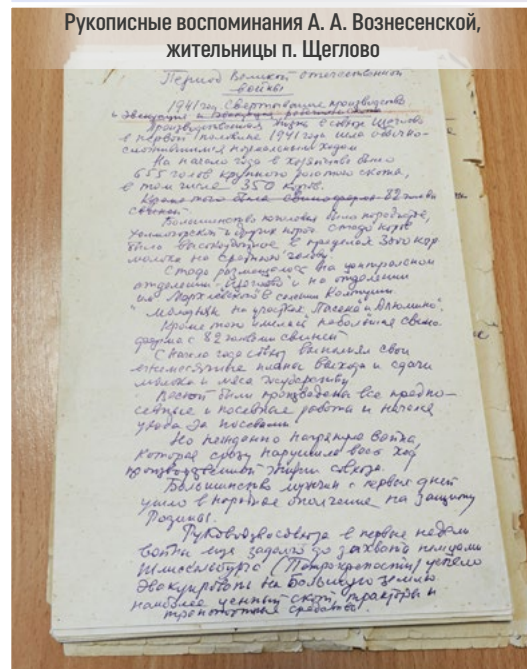 Рукописные воспоминания А. А. Вознесенской,
жительницы п. Щеглово
Период Великой отечественной
войны
1941 год Свертывание производства
и эвакуация
Производственная жизнь в совхозе Щеглово
в первой половине 1941 года шла обычно-
сложившимся нормальным ходом
На начало года в хозяйстве было
655 голов крупного рогатого скота,
в том числе 350 коров.
Кроме того была свиноферма 82 головы
свиней.
Большинство поголовья было породистое,
холмогорской и других пород. Стадо коров
было высокоудойное в пределах 3000 кгр
молока на среднюю голову.
Стадо размещалось на центральном
отделении "Щеглово" и на отделении
им Мархлевского в селении Колтуши.
" Молодняк на участках "Пасека" и "Дюмино".
Кроме того имелась небольшая свино-
ферма с 82 головами свиней
С начала года совхоз выполнял свои
ежемесячные планы выхода и сдачи
молока и мяса государству
Весной были произведены все предпо-
севные и посевная работа и начат
уход за посевами.
Но неждано нагрянула война,
которая сразу нарушила весь ход
производственной жизни совхоза.
Большинство мужчин с первых дней
ушло в народное ополчение на защиту
Родины.
Руководство совхоза в первые недели
войны еще задолго до захвата немцами
Шлиссельбурга (Петрокрепости) успело
эвакуировать на Большую землю
наиболее ценный скот, тракторы и
транспортные средства.